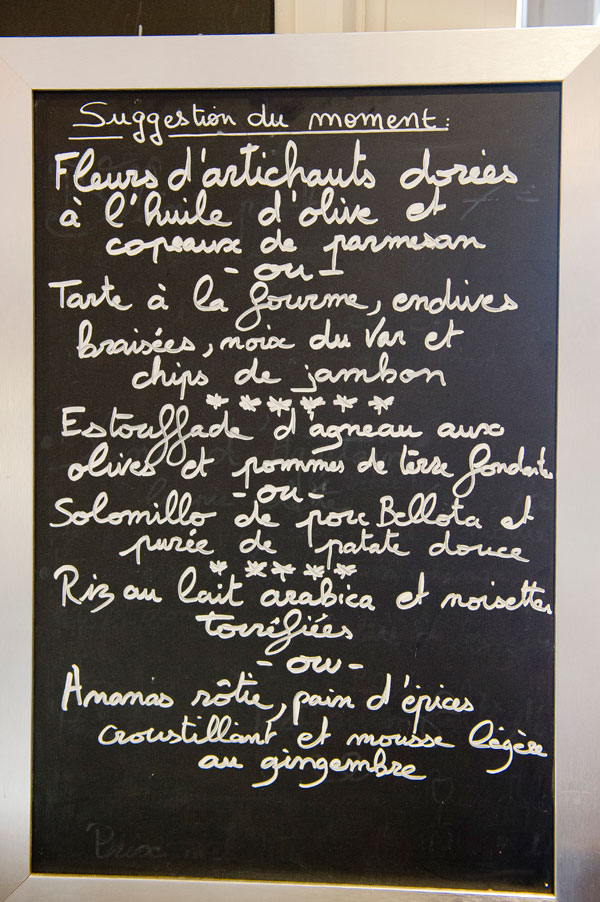 Suggestion du moment:
Fleurs d'artichauts dorées
à l'huile d'olive et
copeaux de parmesan
- ou -
Tarte à la fourme, endives
braisées, noix du Var et
chips de jambon
******
Estouffade d'agneau aux
olives et pommes de terre fondante
- ou -
Solomillo de porc Bellota et
purée de patate douce
*****
Riz au lait arabica et noisettes
torréfiées
- ou -
Ananas rôtie, pain d'épices
croustillant et mousse légère
au gingembre